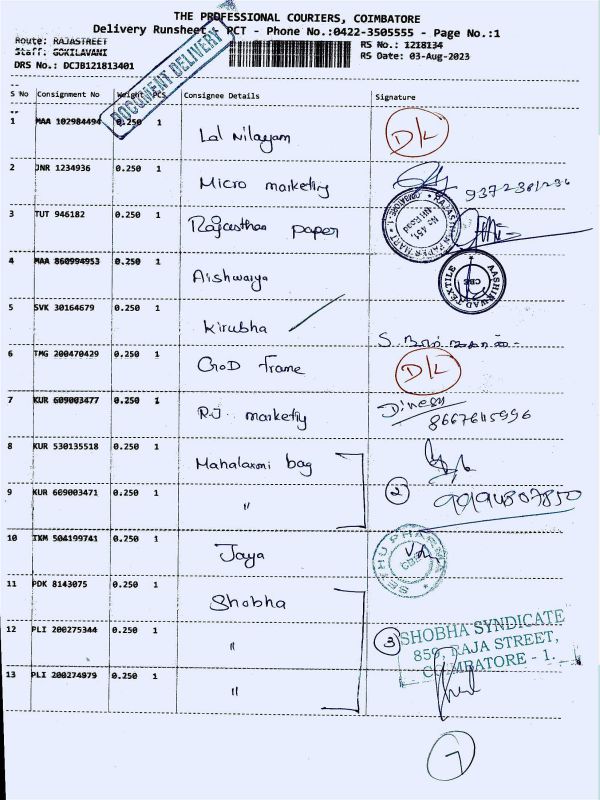 THE PROFESSIONAL COURIERS, COIMBATORE
Delivery Runsheet - PCT - Phone No.:0422-3505555 - Page No.:1
Route: RAJASTREET
RS No.: 1218134
Staff: GOKILAVANI
RS Date: 03-Aug-2023
DRS No.: DCJB121813401
DOCUMENT DELIVERY
S No Consignment No Weight PCS Consignee Details Signature
1 MAA 102984494 0.250 1 Lal Nilayam D/L
2 JNR 1234936 0.250 1 Micro marketing
3 TUT 946182 0.250 1 Rajasthan paper
RAJASTHAN PAPER MART
No. 451,
4 MAA 860994953 0.250 1 Aishwarya
AASHIRWAD TEXTILE
CBE
5 SVK 30164679 0.250 1 Kirubha
6 TMG 200470429 0.250 1 GoD frame D/L
7 KUR 609003477 0.250 1 R.J. marketing Dinesh
8667611596
8 KUR 530135518 0.250 1 Mahalaxmi bag
9 KUR 609003471 0.250 1 " 2
10 IXM 504199741 0.250 1 Jaya
SETHU PHARMA
11 PDK 8143075 0.250 1 Shobha
12 PLI 200275344 0.250 1 " 3
SHOBHA SYNDICATE
859, RAJA STREET,
COIMBATORE - 1.
13 PLI 200274979 0.250 1 "
7